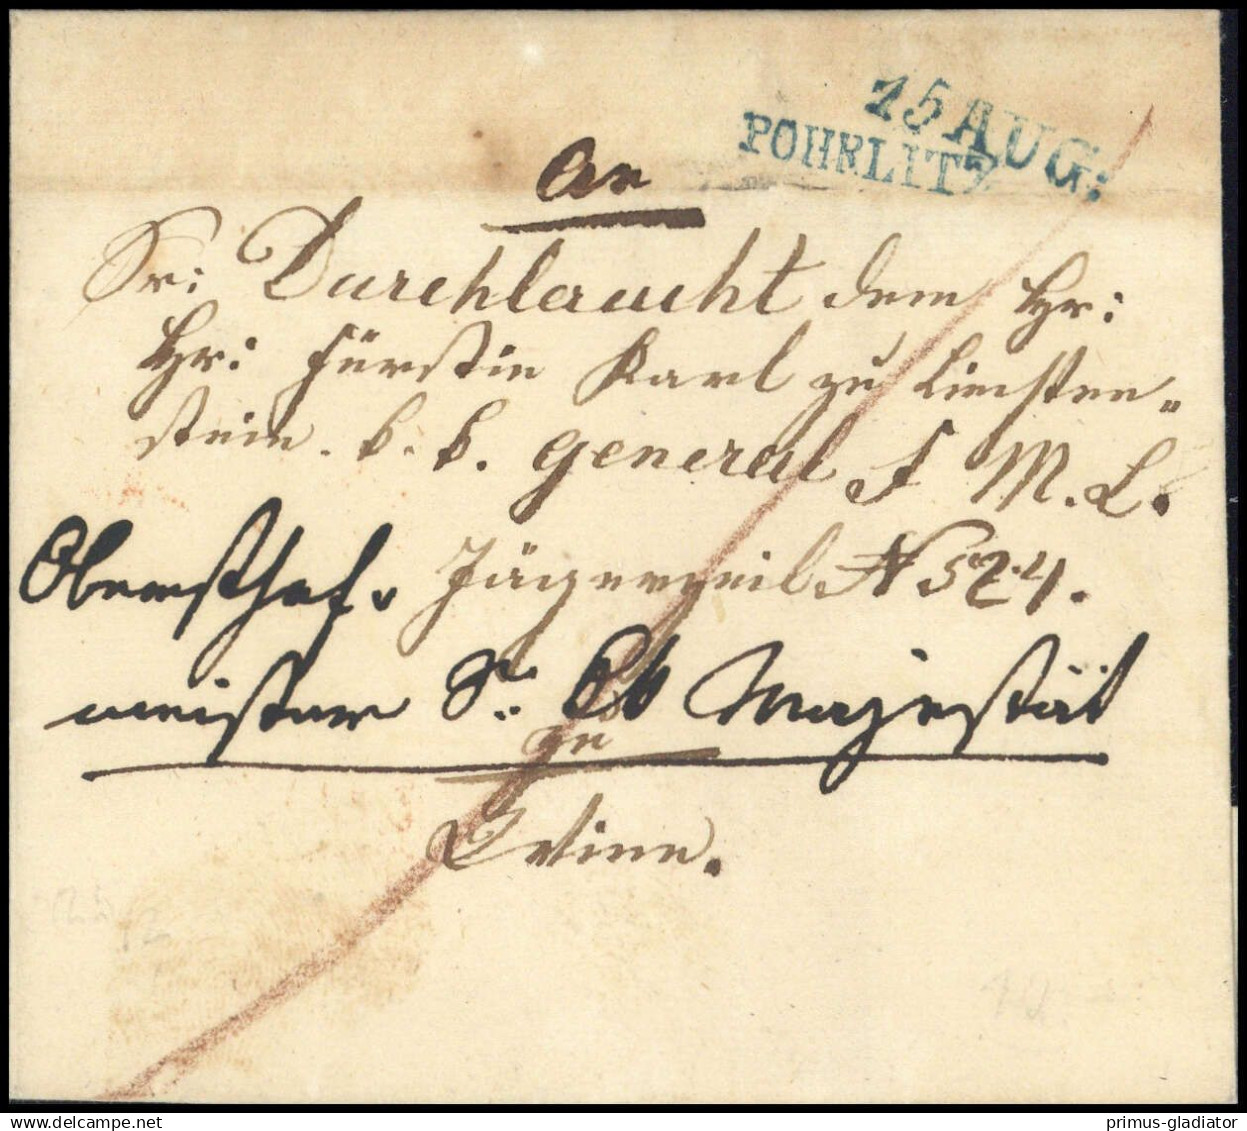 15 AUG:
POHRLITZ
An
Sr: Durchlaucht dem Hr:
Hr: Fürstin Karl zu Liechten=
stein. k. k. General F M. L.
Obersthof- Jägerzeil N 524.
meister Sr. Majestät
zu
Wien.
primus-gladiator